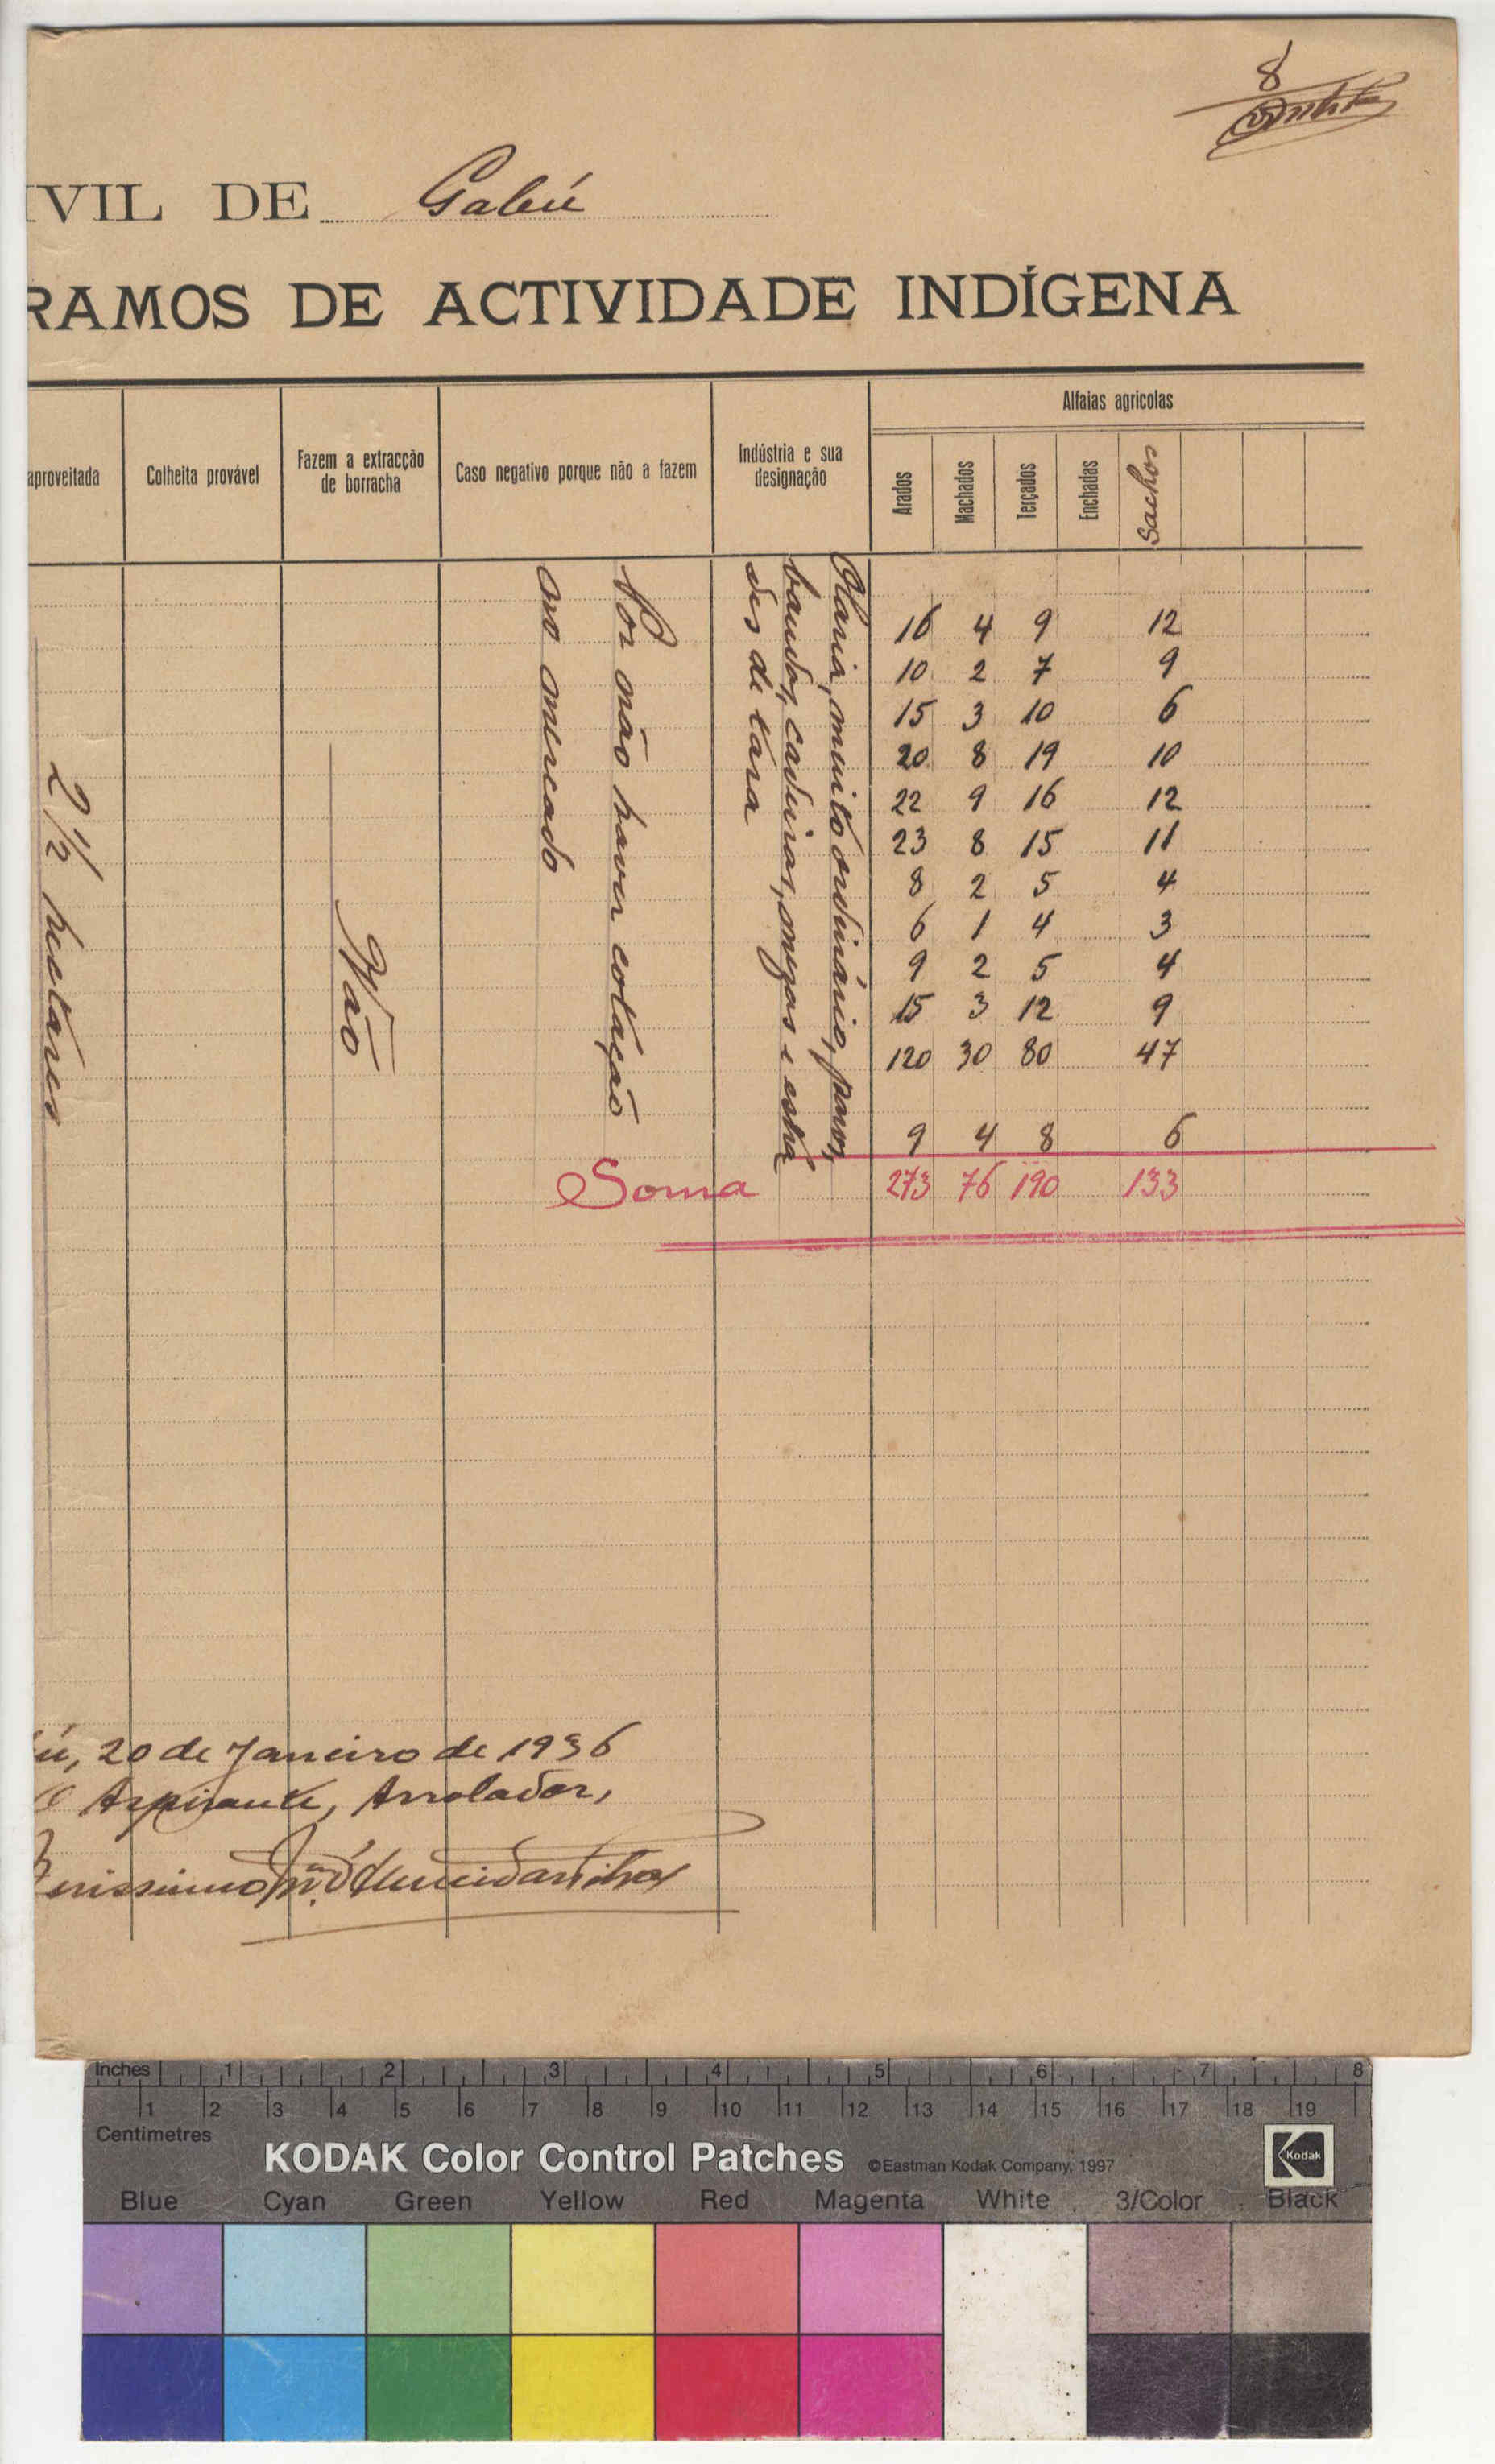 8
IVIL DE Gabú
RAMOS DE ACTIVIDADE INDÍGENA
aproveitada
Colheita provável
Fazem a extracção
de borracha
Caso negativo porque não a fazem
Indústria e sua
designação
Alfaias agricolas
Arados Machados Terçados Enchadas Sachos
2 1/2 hectares
Não
Por não haver cotação
no mercado
Olaria, muito ordinário, panos,
bandas, cadeiras, mezas e estra
des de tara
16 4 9 12
10 2 7 9
15 3 10 6
20 8 19 10
22 9 16 12
23 8 15 11
8 2 5 4
6 1 4 3
9 2 5 4
15 3 12 9
120 30 80 47
9 4 8 6
Soma 273 76 190 133
ú, 20 de Janeiro de 1936
O Aspirante, Arrolador,
Inches 1 2 3 4 5 6 7 8
1 2 3 4 5 6 7 8 9 10 11 12 13 14 15 16 17 18 19
Centimetres
KODAK Color Control Patches ©Eastman Kodak Company, 1997 Kodak
Blue Cyan Green Yellow Red Magenta White 3/Color Black